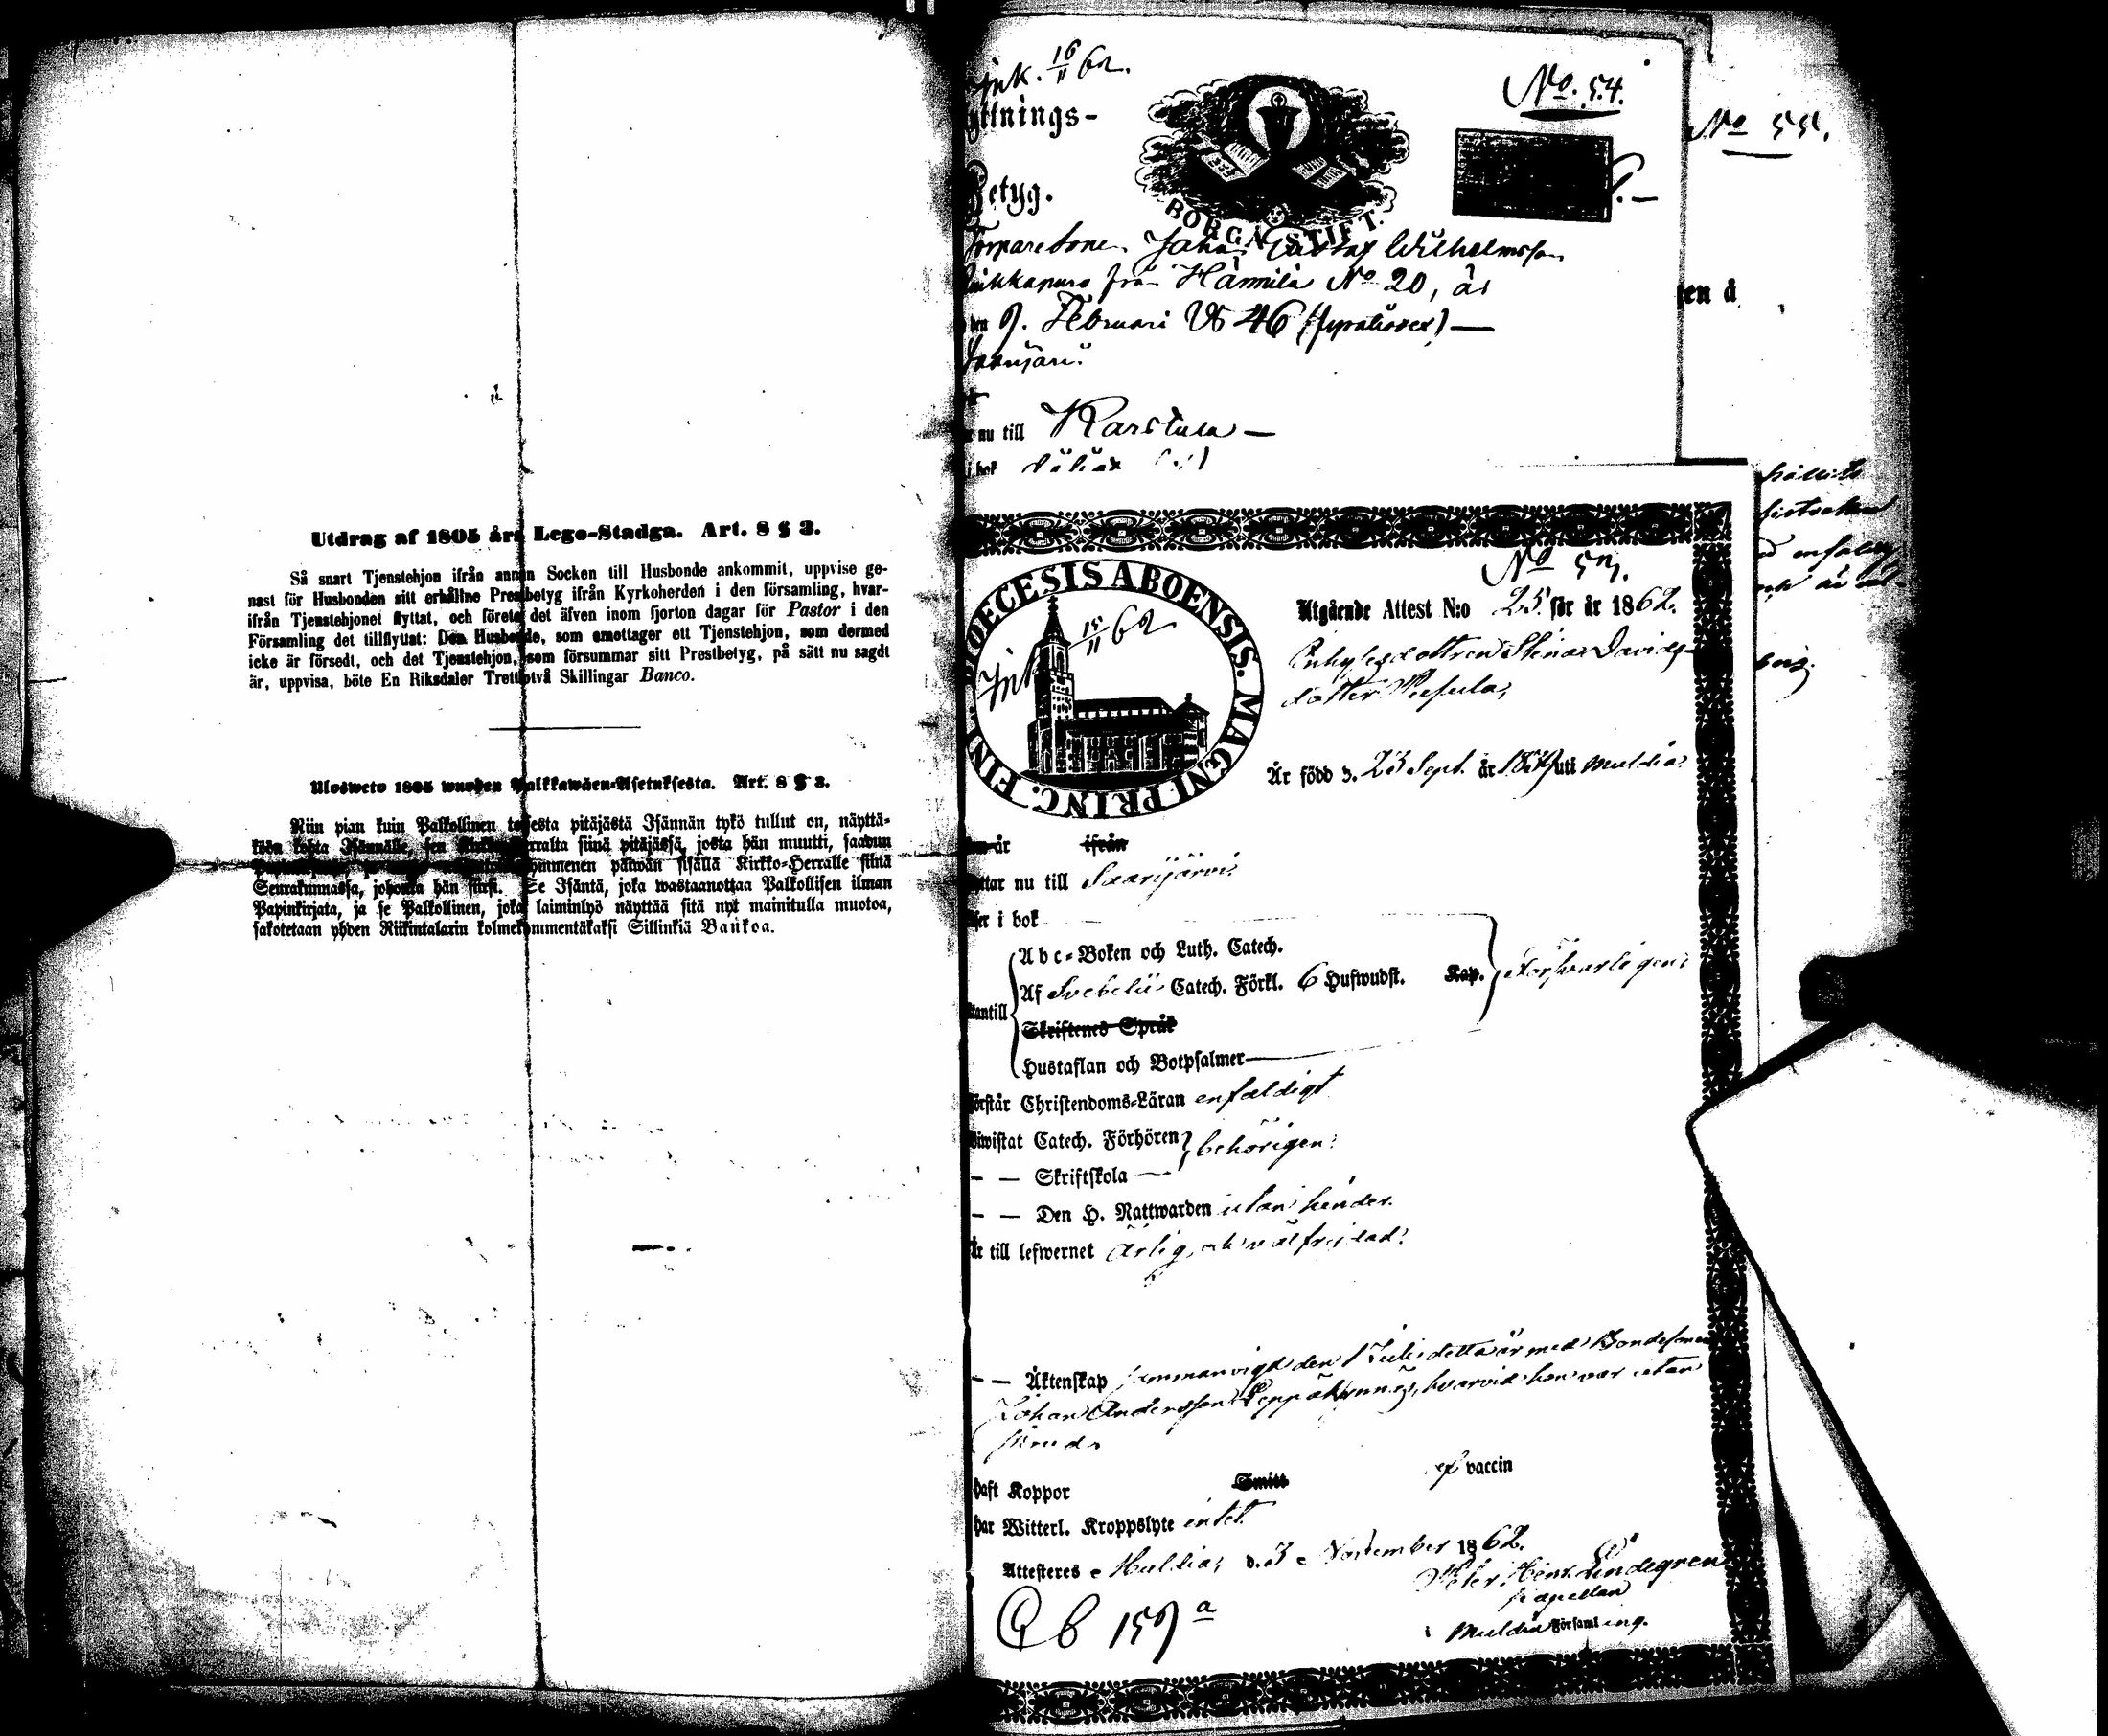 Utdrag af 1805 års Lego-Stadga. Art. 8 § 3.
Så snart Tjenstehjon ifrån annan Socken till Husbonde ankommit, uppvise ge-
nast för Husbonden sitt erhållne Prestbetyg ifrån Kyrkoherden i den församling, hvar-
ifrån Tjenstehjonet flyttat, och förete det äfven inom fjorton dagar för Pastor i den
Församling det tillflyttat: Den Husbonde, som emottager ett Tjenstehjon, som dermed
icke är försedt, och det Tjenstehjon, som försummar sitt Prestbetyg, på sätt nu sagdt
är, uppvisa, böte En Riksdaler Trettiotvå Skillingar Banco.
Ulosweto 1805 wuoden Palkkawäen-Asetuksesta. Art. 8 § 3.
Niin pian kuin Palkollinen toisesta pitäjästä Isännän tykö tullut on, näyttä-
köön kohta Isännälle, sen Kirkko-Herralta siinä pitäjässä, josta hän muutti, saadun
päiwän sisällä Kirkko-Herralle siinä
Seurakunnassa, johonka hän siirsi. Se Isäntä, joka wastaanottaa Palkollisen ilman
Papinkirjata, ja se Palkollinen, joka laiminlyö näyttää sitä nyt mainitulla muotoa,
sakotetaan yhden Riikintalarin kolmekymmentäkaksi Sillinkiä Bankoa.
Ink. 16/11 62.
yttnings-
Betyg.
BORGÅ STIFT.
No. 54.
Torparesonen Johan Gustaf Wilhelmsson
från Hännilä No 20, är
den 9. Februari 1846 (fyratiosex) —
Saarijärvi
nu till Karstula —
i bok
No 55.
en å
No 53.
DIOECESIS ABOENSIS. MAGNI PRINC. FINL.
Ink 15/11 62
Utgående Attest N:o 25 för år 1862.
Inhysesdottren Stina Davids-
dotter
Är född d. 23 Sept. år uti Multia
år ifrån
ttar nu till Saarijärvi
er i bok
Abc-Boken och Luth. Catech.
Af Svebelii Catech. Förkl. 6 Hufwudst. Kap. Försvarligen
utantill
Skriftenes Språk
Hustaflan och Botpsalmer
örstår Christendoms-Läran enfaldigt
biwistat Catech. Förhören behörigen
— — Skriftskola —
— — Den H. Nattwarden utan hinder.
Är till lefwernet ärlig och välfrejdad.
— — Äktenskap sammanvigd den 1 Juli detta år med Bondesonen
Johan Andersson hvarvid hon var utan
skrud.
haft Koppor Smitt af vaccin
har Witterl. Kroppslyte intet
Attesteres Multia, d. 3 November 1862.
Petr. Henr. Lindegren
Kapellan
i Multia Församling.